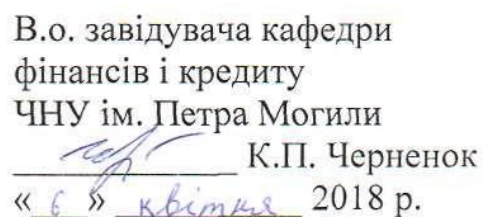 В.о. завідувача кафедри
фінансів і кредиту
ЧНУ ім. Петра Могили
К.П. Черненок
« 6 » квітня 2018 р.